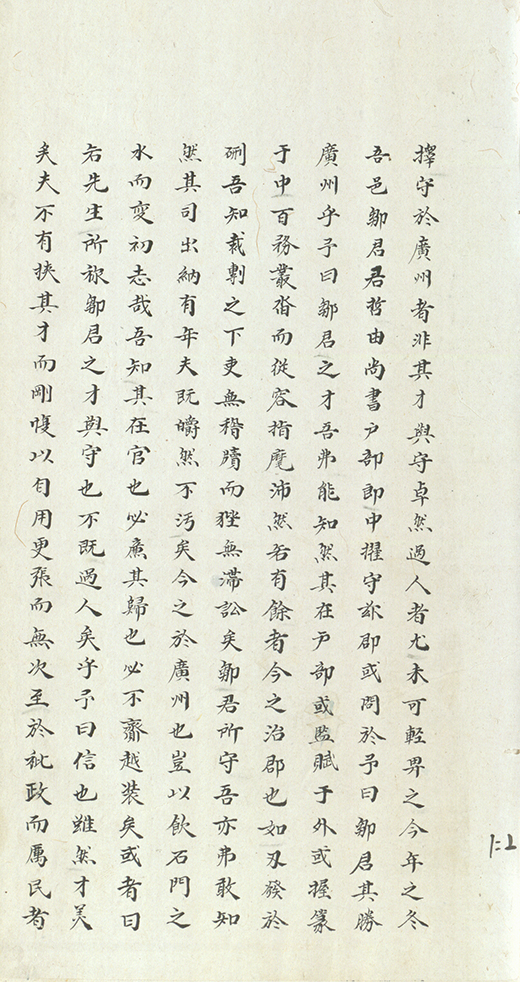 擇守於廣州者非其才與守卓然過人者尤未可輕畀之今年之冬
吾邑鄒君君哲由尚書户部郎中擢守茲郡或問於予曰鄒君其勝
廣州乎予曰鄒君之才吾弗能知然其在户部或監賦于外或握篆
于中百務叢沓而從容指麾沛然若有餘者今之治郡也如刃發於
硎吾知裁剸之下吏無稽牘而狴無滯訟矣鄒君所守吾亦弗敢知
然其司出納有年夫既皭然不汚矣今之於廣州也豈以飲石門之
水而變初志哉吾知其在官也必廉其歸也必不齎越裝矣或者曰
若先生所称鄒君之才與守也不既過人矣乎予曰信也雖然才美
矣夫不有挾其才而剛愎以自用更張而無次至於秕政而厲民者